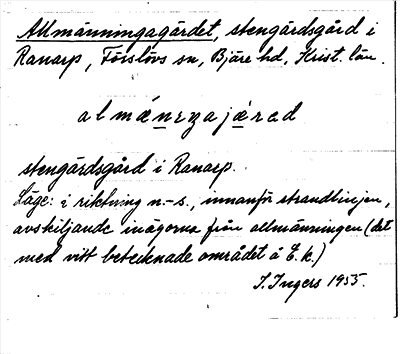 Allmänningagärdet, stengärdsgård i
Ranarp, Förslövs sn, Bjäre hd, Krist. län.
stengärdsgård i Ranarp.
Läge: i riktning n.-s., innanför strandlinjen,
avskiljande inägorna från allmänningen (det
med vitt betecknade området å E.k.)
I. Ingers 1955.